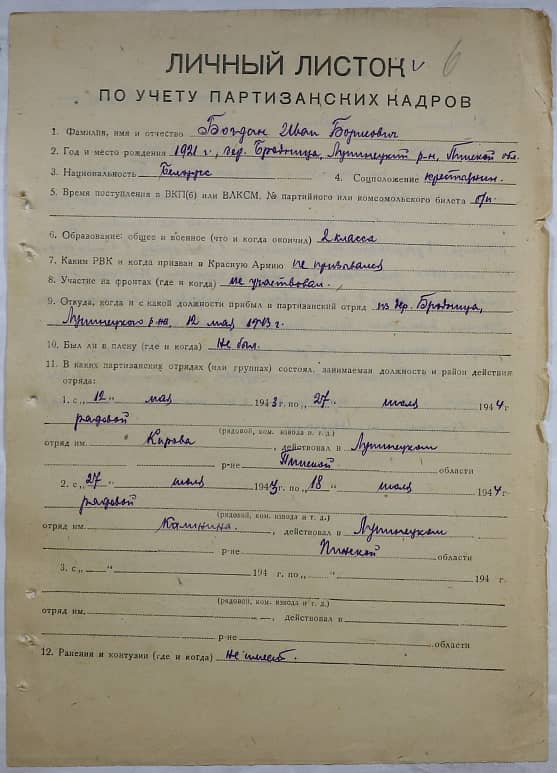 6
ЛИЧНЫЙ ЛИСТОК
ПО УЧЕТУ ПАРТИЗАНСКИХ КАДРОВ
1. Фамилия, имя и отчество Богдан Иван Борисович
2. Год и место рождения 1921 г., дер. Бродница, Лунинецкий р-н, Пинской обл.
3. Национальность Белорус 4. Соцположение крестьянин.
5. Время поступления в ВКП(б) или ВЛКСМ, № партийного или комсомольского билета б/п.
6. Образование: общее и военное (что и когда окончил) 2 класса
7. Каким РВК и когда призван в Красную Армию не призывался
8. Участие на фронтах (где и когда) не участвовал.
9. Откуда, когда и с какой должности прибыл в партизанский отряд из дер. Бродница,
Лунинецкого р-на, 12 мая 1943 г.
10. Был ли в плену (где и когда) Не был.
11. В каких партизанских отрядах (или группах) состоял, занимаемая должность и район действия
отряда:
1. с „12" мая 1943 г. по „27" июля 1944 г
рядовой
(рядовой, ком. взвода и т. д.)
отряд им. Кирова, действовал в Лунинецком
р-не Пинской области
2. с „27" июля 1943 г. по „18" июля 1944 г
рядовой
(рядовой, ком. взвода и т. д.)
отряд им. Калинина., действовал в Лунинецком
р-не Пинской области
3. с „ " 194 г. по „ " 194 г.
(рядовой, ком. взвода и т. д.)
отряд им. , действовал в
р-не области
12. Ранения и контузии (где и когда) Не имеет.